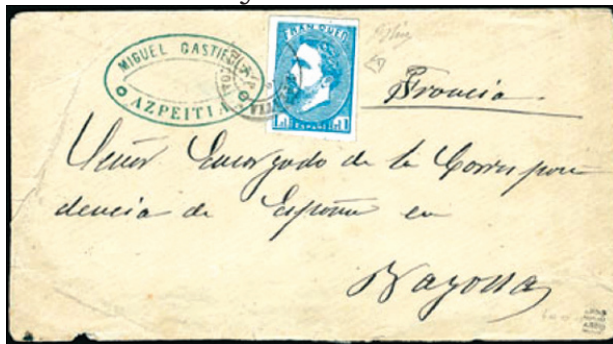 MIGUEL GASTIE
AZPEITIA
FRANQUEO
ESPAÑA
Francia.
Señor Encargado de la Correspon
dencia de España en
Bayona